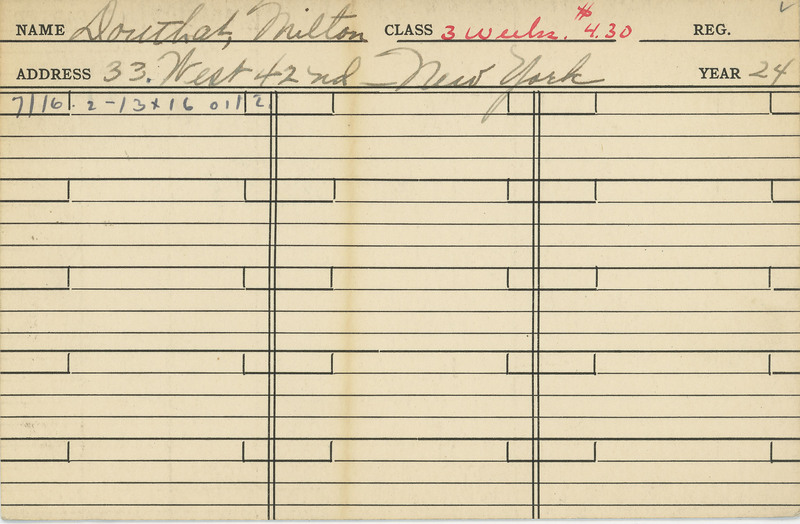 NAME Douthat, Milton CLASS 3 weeks. $4.30 REG.
ADDRESS 33. West 42nd - New York YEAR 24
7/16. 2-13x16 oil 2.